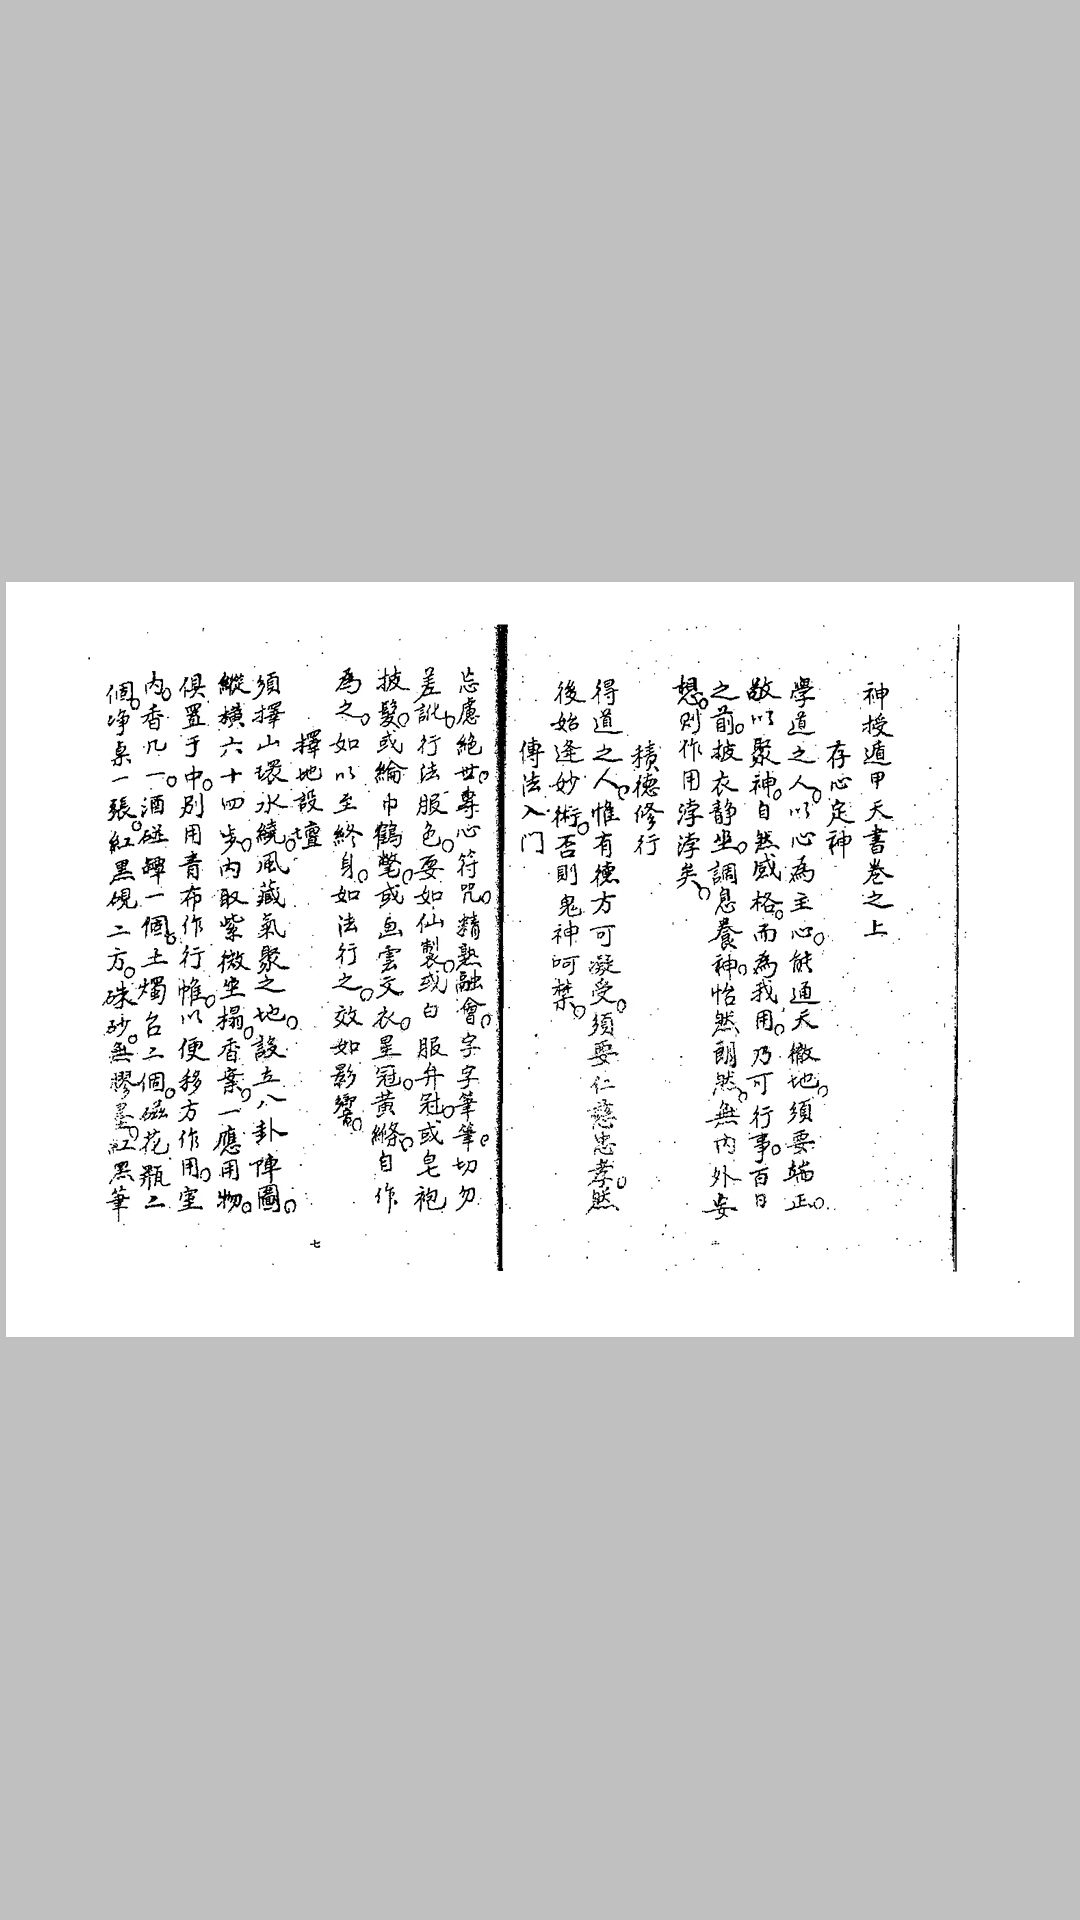 神授遁甲天書卷之上
存心定神
學道之人。以心為主。心能通天徹地。須要端正。
敬以聚神。自然感格。而為我用。乃可行事。百日
之前。披衣靜坐。調息養神。怡然朗然。無內外妄
想。則作用浡浡矣。
積德修行
得道之人。惟有德方可凝受。須要仁慈忠孝。然
後始逢妙術。否則鬼神呵禁。
傳法入门
忘慮絕世。專心符咒。精熟融會。字字筆筆。切勿
差訛。行法服色。要如仙製。或白服弁冠。或皂袍
披髮。或綸巾鶴氅。或画雲文衣。星冠。黃縧。自作
為之。如以至終身。如法行之。效如影響。
擇地設壇
須擇山環水繞。風藏氣聚之地。設立八卦陣圖。
縱橫六十四步。內取紫微坐榻。香案。一應用物。
俱置于中。別用青布作行帷。以便移方作用。室
內。香几一。酒碰罇一個。土燭台二個。磁花瓶二
個。净桌一張。紅黑硯二方。硃砂。無膠墨。紅黑筆
七